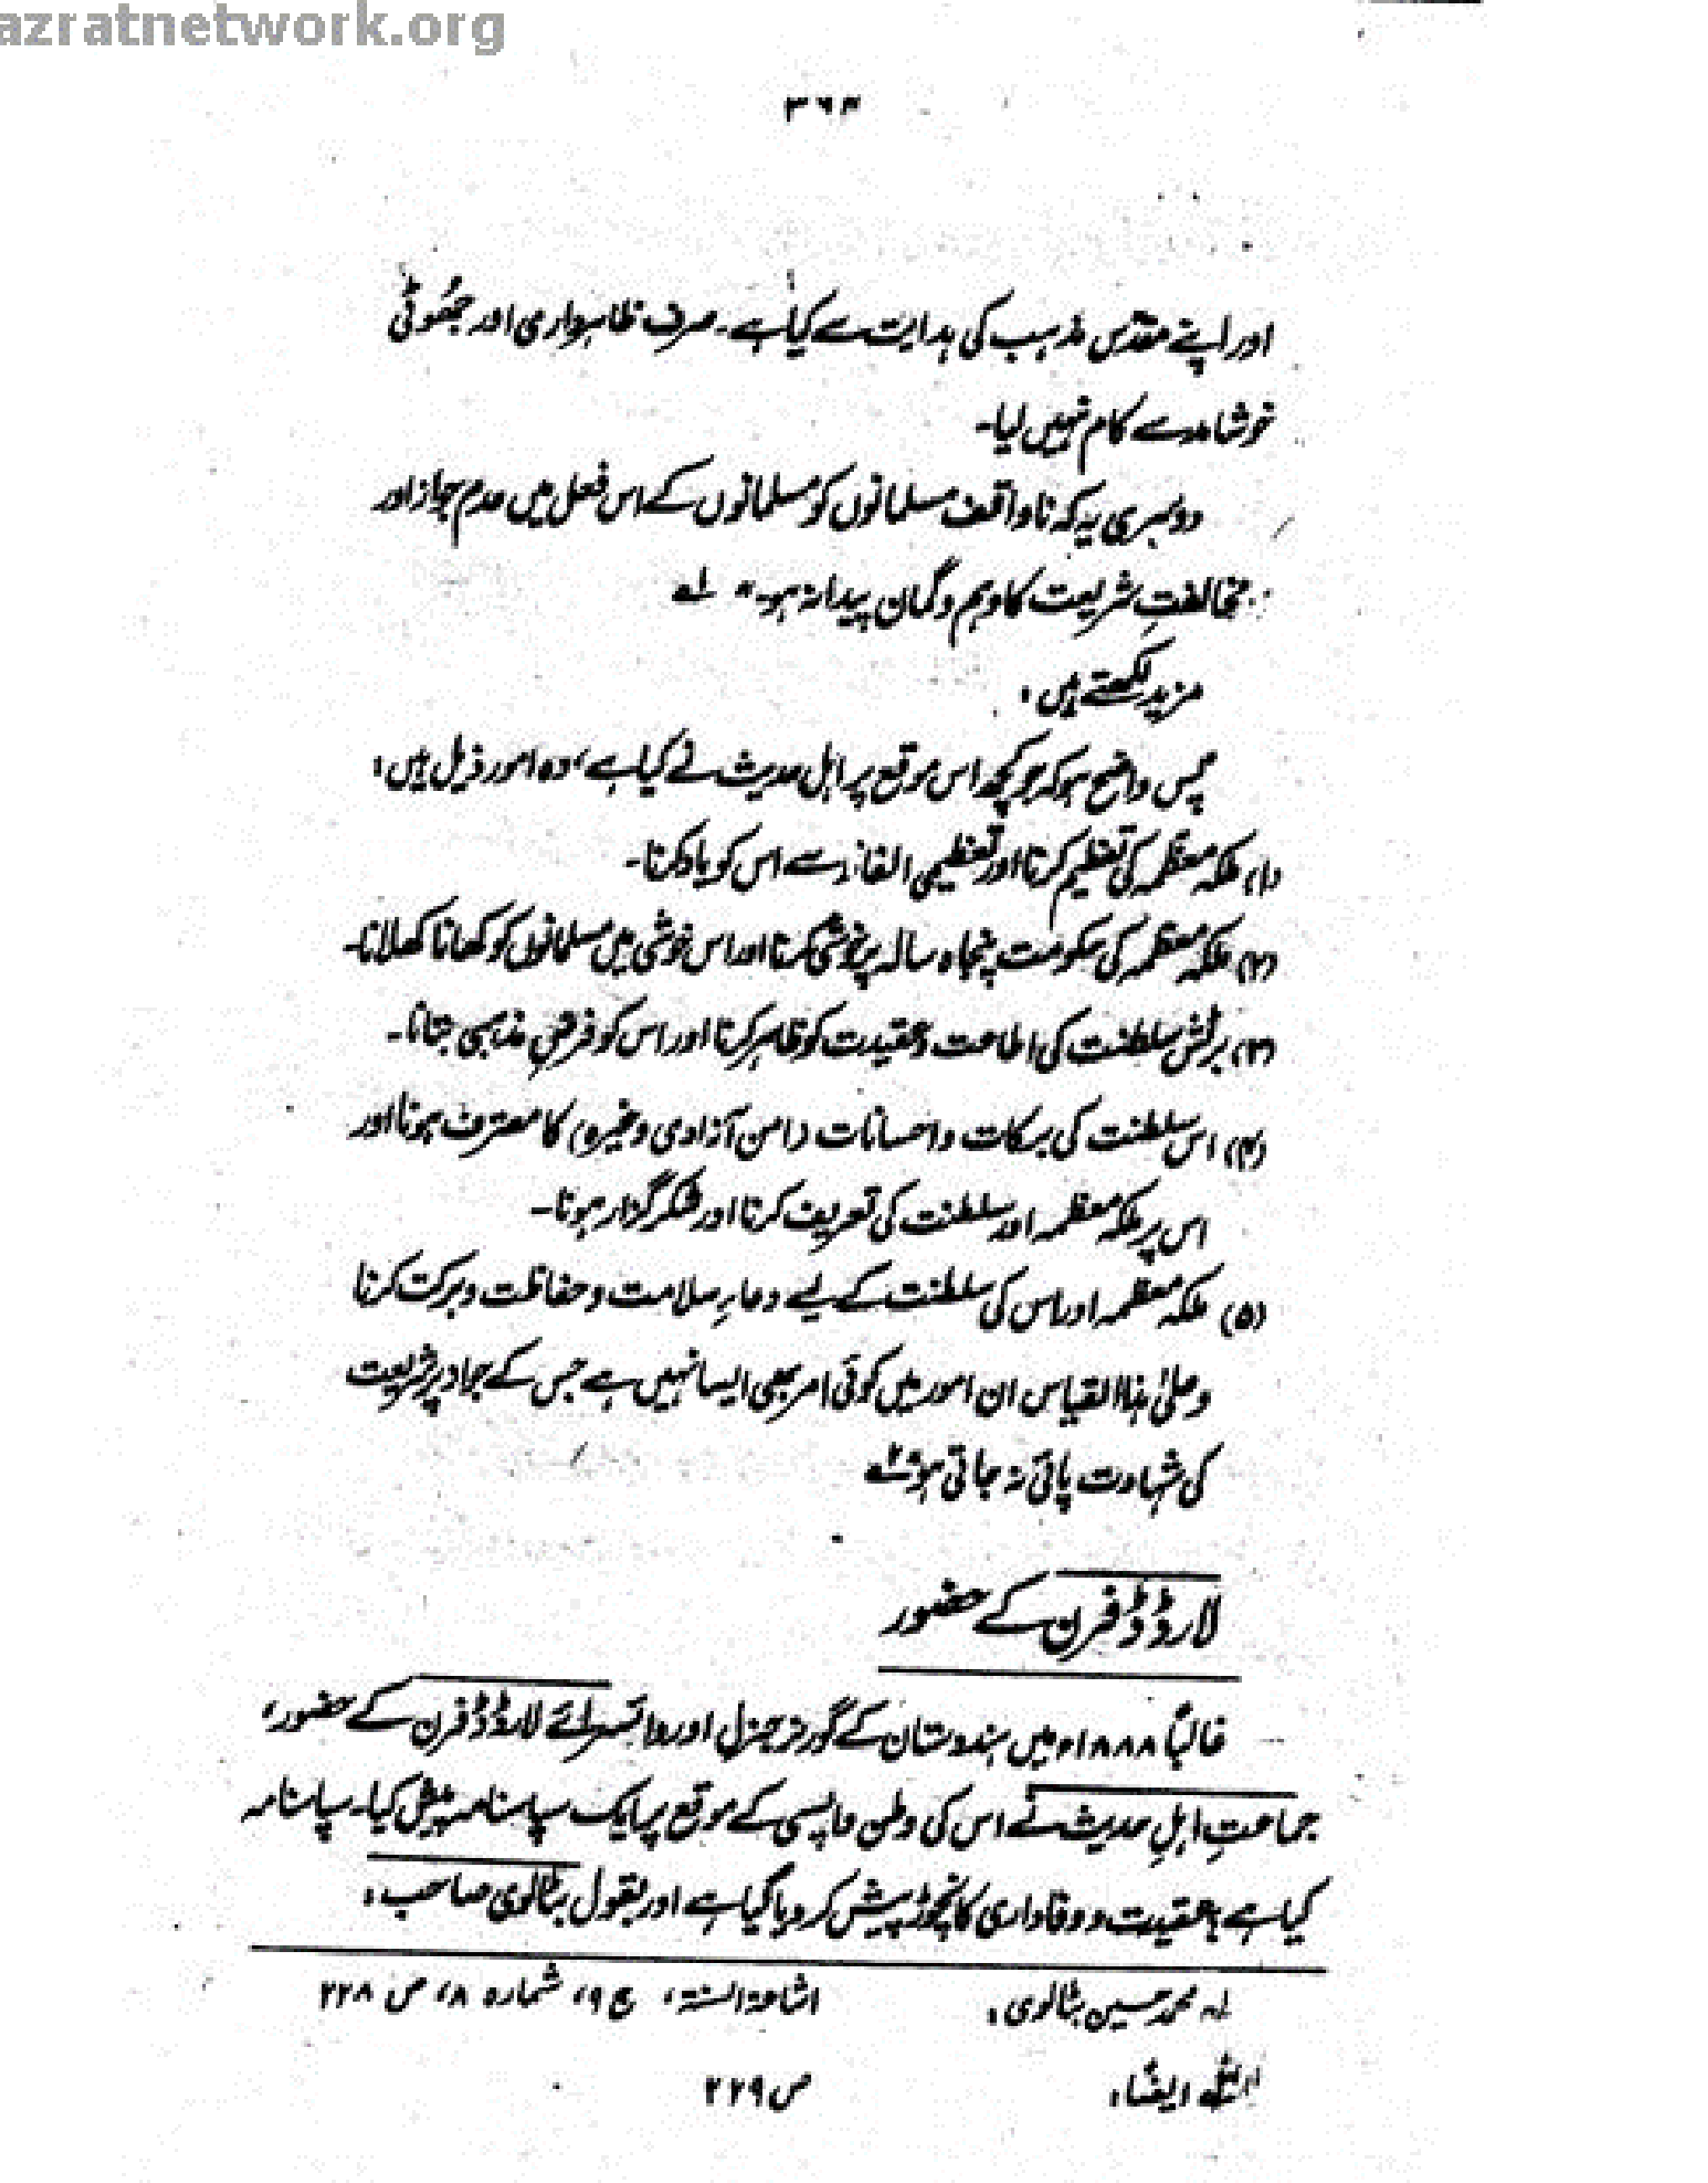 azratnetwork.org
۳۶۴
اور اپنے مقدس مذہب کی ہدایت سے کیا ہے۔ صرف ظاہرداری اور جھوٹی
خوشامد سے کام نہیں لیا۔
دوسری یہ کہ ناواقف مسلمانوں کو مسلمانوں کے اس فعل میں عدم جواز اور
مخالفتِ شریعت کا وہم و گمان پیدا نہ ہو۔" لے
مزید لکھتے ہیں :
پس واضح ہو کہ جو کچھ اس موقع پر اہل حدیث نے کیا ہے، وہ امور ذیل ہیں :
(۱) ملکہ معظمہ کی تعظیم کرنا اور تعظیمی الفاظ سے اس کو یاد کرنا۔
(۲) ملکہ معظمہ کی حکومت پنجاہ سالہ پر خوشی کرنا اور اس خوشی میں مسلمانوں کو کھانا کھلانا۔
(۳) برٹش سلطنت کی اطاعت و عقیدت کو ظاہر کرنا اور اس کو فرضِ مذہبی بتانا۔
(۴) اس سلطنت کی برکات و احسانات (امن آزادی وغیرہ) کا معترف ہونا اور
اس پر ملکہ معظمہ اور سلطنت کی تعریف کرنا اور شکر گزار ہونا۔
(۵) ملکہ معظمہ اور اس کی سلطنت کے لیے دعاءِ سلامت و حفاظت و برکت کرنا
وعلیٰ ہذا القیاس ان امور میں کوئی امر بھی ایسا نہیں ہے جس کے جواز پر شریعت
کی شہادت پائی نہ جاتی ہو ۲ے
لارڈ ڈفرن کے حضور
غالباً ۱۸۸۸ء میں ہندوستان کے گورنر جنرل اور وائسرائے لارڈ ڈفرن کے حضور،
جماعتِ اہلِ حدیث نے اس کی وطن واپسی کے موقع پر ایک سپاسنامہ پیش کیا۔ سپاسنامہ
کیا ہے، عقیدت و وفاداری کا نچوڑ پیش کر دیا گیا ہے اور بقول بٹالوی صاحب :
۱ے محمد حسین بٹالوی : اشاعۃ السنۃ، ج ۹، شمارہ ۸، ص ۲۲۸
۲ے ایضًا : ص ۲۲۹